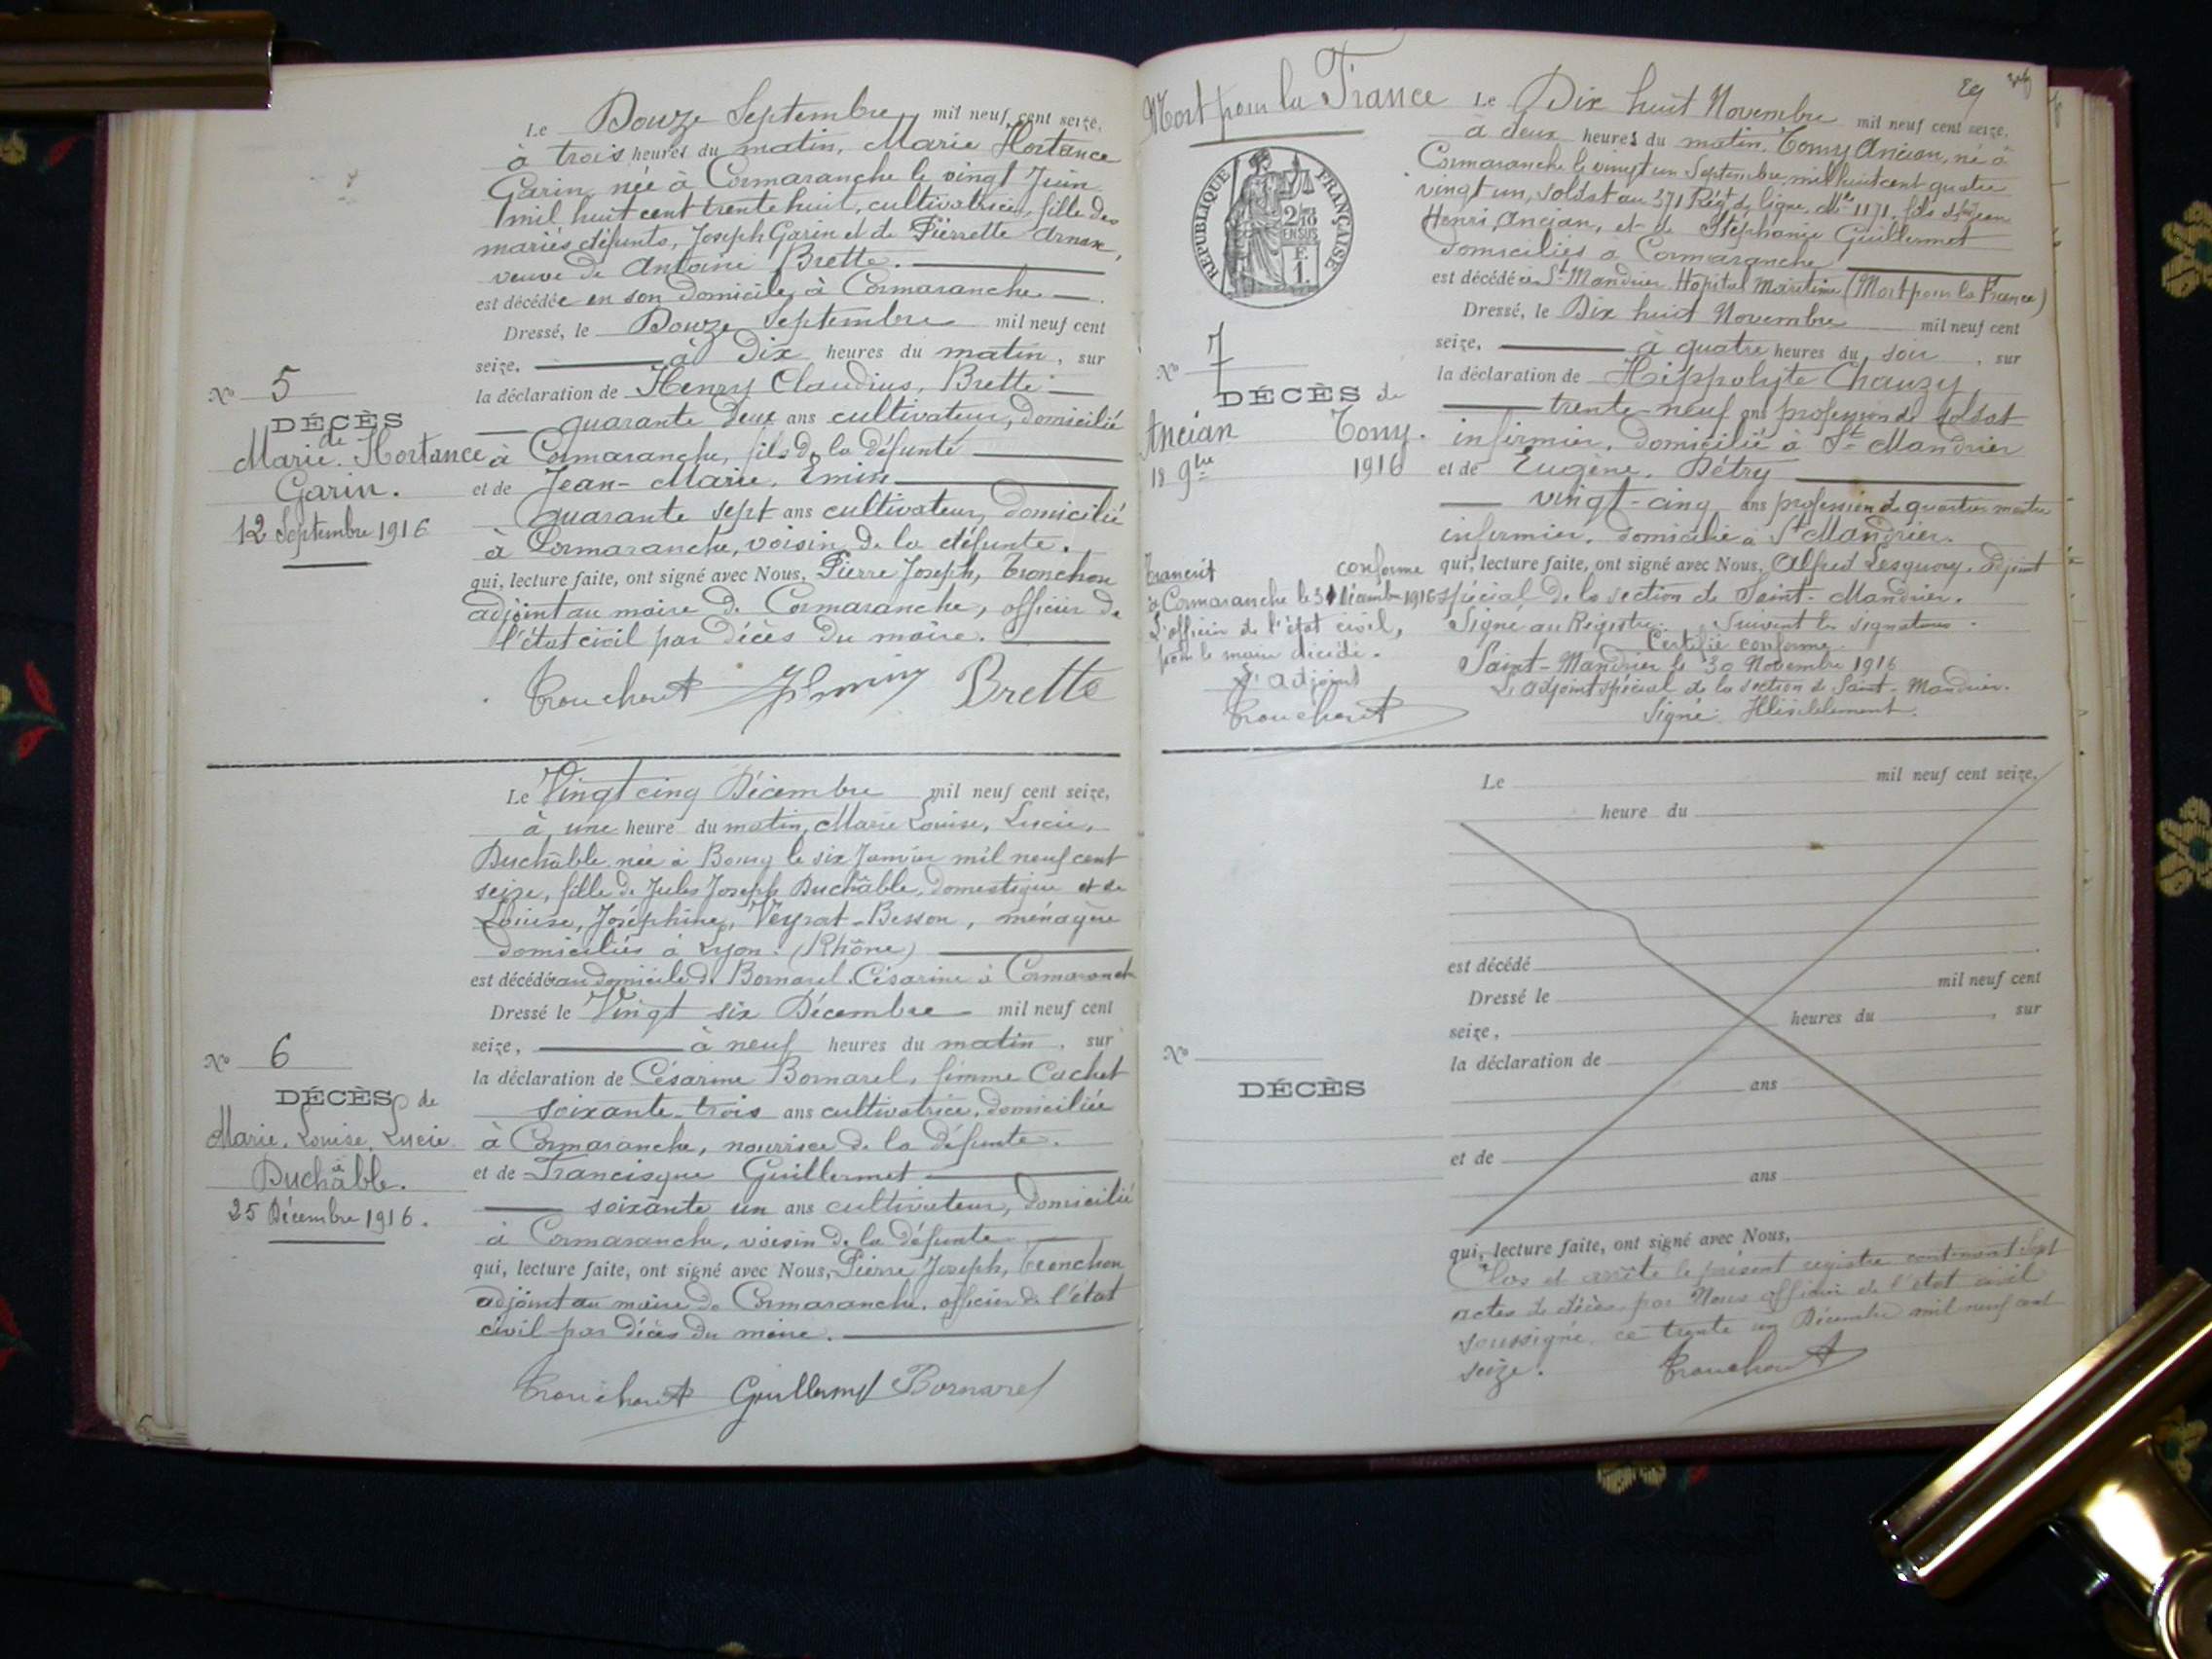 Le Douze Septembre mil neuf cent seize,
à trois heures du matin, Marie Hortance
Garin, née à Cormaranche le vingt Juin
mil huit cent trente huit, cultivatrice, fille des
mariés défunts, Joseph Garin et de Pierrette Armax,
veuve de Antoine Brette.
est décédée en son domicile, à Cormaranche
Dressé, le Douze Septembre mil neuf cent
seize, à Dix heures du matin, sur
la déclaration de Henry Claudius, Brette
quarante deux ans cultivateur, domicilié
à Cormaranche, fils de la défunte
et de Jean-Marie, Emin
Quarante sept ans cultivateur, domicilié
à Cormaranche, voisin de la défunte.
qui, lecture faite, ont signé avec Nous, Pierre Joseph, Tronchon
adjoint au maire de Cormaranche, officier de
l'état civil par décès du maire.
Brette
No 5
DÉCÈS
de
Marie. Hortance
Garin.
12 Septembre 1916
Le Vingt cinq Décembre mil neuf cent seize,
à une heure du matin, Marie Louise, Lucie,
Duchâble née à Bourg le six Janvier mil neuf cent
seize, fille de Jules Joseph Duchâble, domestique et de
Louise, Joséphine, Veyrat-Besson, ménagère
domiciliés à Lyon. (Rhône)
est décédée au domicile de Bornarel Césarine à Cormaranche
Dressé le Vingt six Décembre mil neuf cent
seize, à neuf heures du matin, sur
la déclaration de Césarine Bornarel, femme Cachet
soixante-trois ans cultivatrice, domiciliée
à Cormaranche, nourrice de la défunte.
et de Francisque Guillermet
soixante un ans cultivateur, domicilié
à Cormaranche, voisin de la défunte
qui, lecture faite, ont signé avec Nous, Pierre Joseph, Tronchon
adjoint au maire de Cormaranche, officier de l'état
civil par décès du maire.
Guillermet Bornarel
No 6
DÉCÈS de
Marie, Louise, Lucie
Duchâble.
25 Décembre 1916.
Mort pour la France
RÉPUBLIQUE FRANÇAISE
No 7
DÉCÈS de
Ancian Tony.
18 9bre 1916
Transcrit conforme
à Cormaranche le 31 Décembre 1916
L'officier de l'état civil,
pour le maire décédé.
L'adjoint
Le Dix huit Novembre mil neuf cent seize,
à deux heures du matin, Tony Ancian, né à
Cormaranche le vingt un Septembre mil huit cent quatre
vingt un, soldat au 371 Régt de ligne, Mle 1171, fils de Jean
Henri, Ancian, et de Stéphanie Guillermet
domiciliés à Cormaranche
est décédé à St Mandrier Hopital Maritime (Mort pour la France)
Dressé, le Dix huit Novembre mil neuf cent
seize, à quatre heures du soir, sur
la déclaration de Hippolyte Chauzy
trente-neuf ans profession de soldat
infirmier, domicilié à St Mandrier
et de Eugène, Pétry
vingt-cinq ans profession de quartier maître
infirmier, domicilié à St Mandrier.
qui, lecture faite, ont signé avec Nous, Alfred Lesquoy, adjoint
spécial de la section de Saint-Mandrier.
Signé au Registre. Suivent les signatures.
Certifié conforme.
Saint-Mandrier le 30 Novembre 1916
L'adjoint spécial de la section de Saint-Mandrier.
Signé:
Le mil neuf cent seize,
heure du
est décédé
Dressé le mil neuf cent
seize, heures du , sur
la déclaration de
ans
et de
ans
qui, lecture faite, ont signé avec Nous,
No
DÉCÈS
Clos et arrêté le présent registre contenant sept
actes de décès, par Nous officier de l'état civil
soussigné, ce trente un Décembre mil neuf cent
seize.